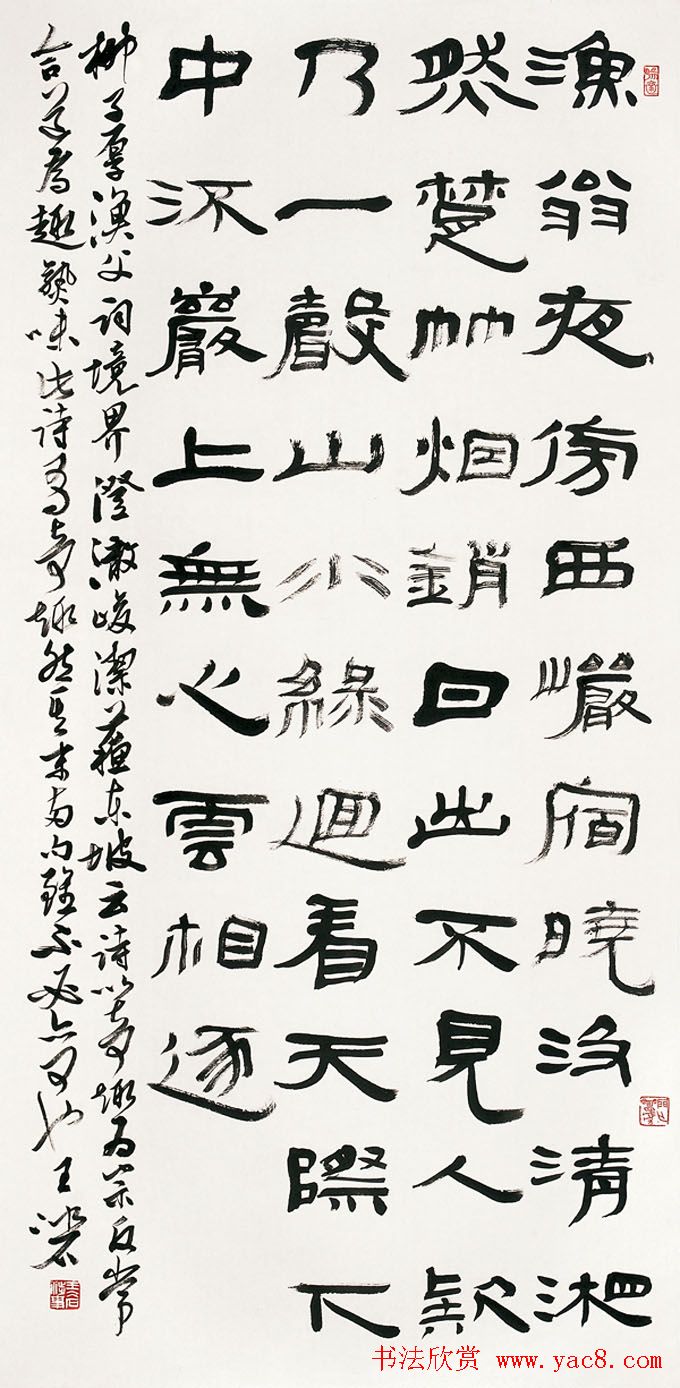 漁翁夜傍西巖宿曉汲清湘
然楚竹烟銷日出不見人欸
乃一聲山水綠迴看天際下
中流巖上無心雲相逐
柳子厚漁父詞境界澄澈峻潔蘇東坡云詩以奇趣為宗反常
合道為趣熟味此詩有奇趣然其末兩句雖不必亦可也王
书法欣赏 www.yac8.com